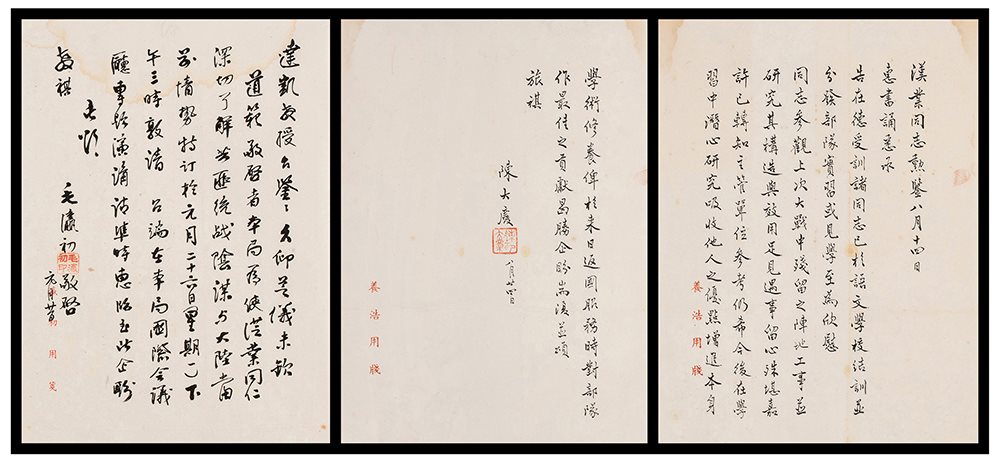 漢業同志勲鑒八月十四日
惠書誦悉承
告在德受訓諸同志已於語文學校結訓並
分發部隊實習或見學至為欣慰
同志參觀上次大戰中殘留之陣地工事並
研究其構造與效用足見遇事留心殊堪嘉
許已轉知主管單位參考仍希今後在學
習中潛心研究吸收他人之優點增進本身
養浩用牋
學術修養俾於來日返國服務時對部隊
作最佳之貢獻曷勝企盼耑復並頌
旅祺
陳大慶
八月廿四日
養浩用牋
達凱教授台鑒:久仰芝儀未欽
道範敬啟者本局為使從業同仁
深切了解共匪統战陰謀与大陸當
前情勢特訂於元月二十六日星期(一)下
午三時敦請 台端在本局國際會議
廳專題演講請準時惠臨至此企盼
教祺
毛瀛初敬啓
初用箋